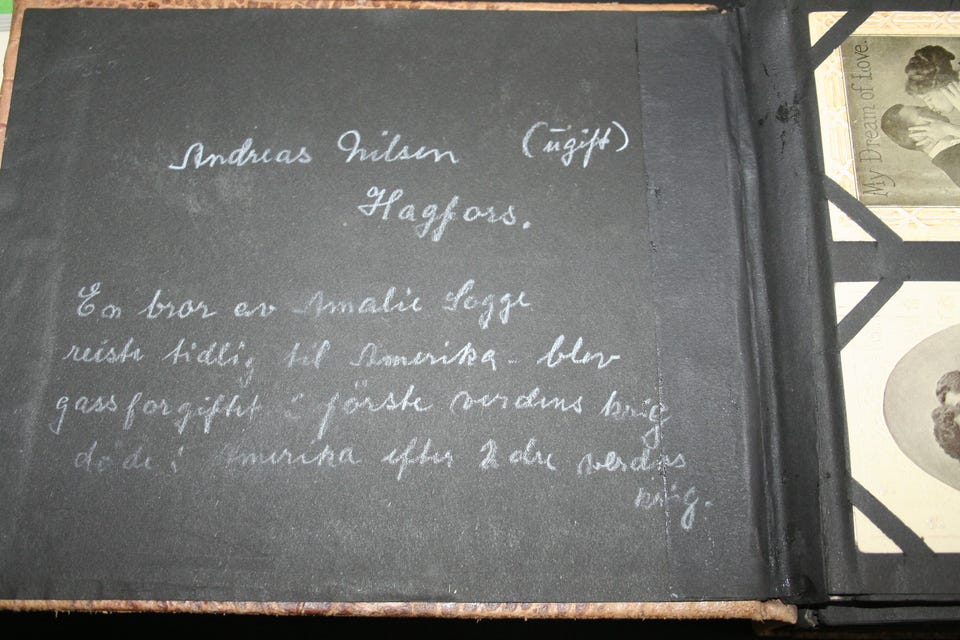 Andreas Nilsen (ugift)
Hagfors.
En bror av Amalie Sogge
reiste tidlig til Amerika - blev
gassforgiftet i förste verdens krig
döde i Amerika efter 2dre verdens
krig.
My Dream of Love.